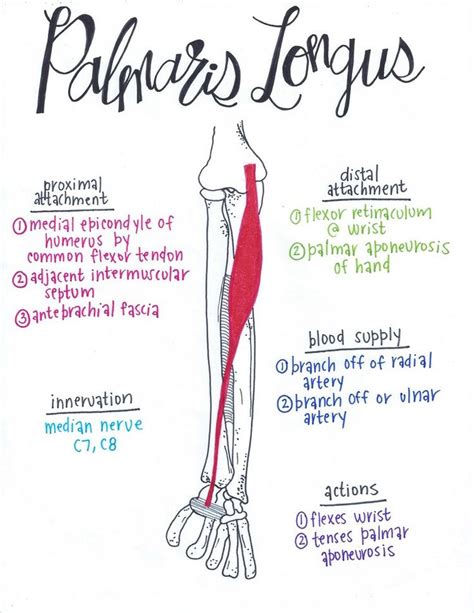 Palmaris Longus
proximal
attachment
① medial epicondyle of
humerus by
common flexor tendon
② adjacent intermuscular
septum
③ antebrachial fascia
distal
attachment
① flexor retinaculum
@ wrist
② palmar aponeurosis
of hand
blood supply
① branch off of radial
artery
② branch off or ulnar
artery
innervation
median nerve
C7, C8
actions
① flexes wrist
② tenses palmar
aponeurosis